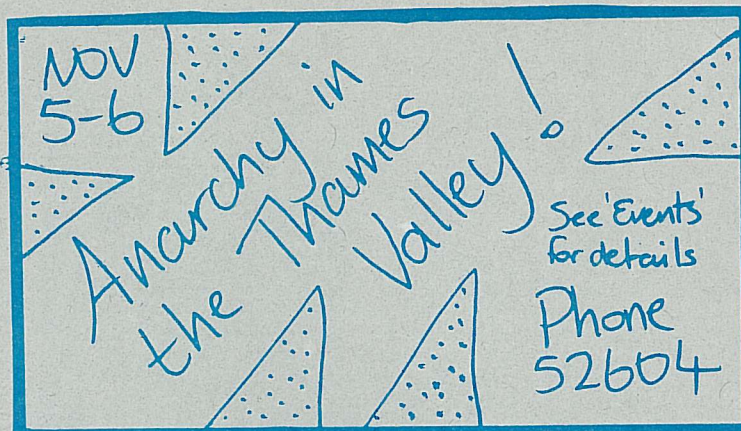 NOV
5-6
Anarchy in
the Thames
Valley!
See 'Events'
for details
Phone
52604